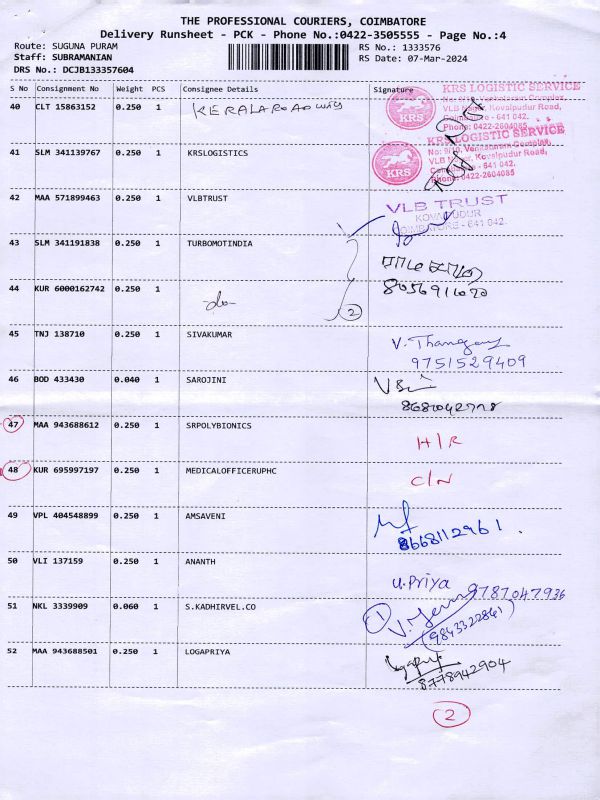 THE PROFESSIONAL COURIERS, COIMBATORE
Delivery Runsheet - PCK - Phone No.:0422-3505555 - Page No.:4
Route: SUGUNA PURAM
RS No.: 1333576
Staff: SUBRAMANIAN
RS Date: 07-Mar-2024
DRS No.: DCJB133357604
S No Consignment No Weight PCS Consignee Details Signature
40 CLT 15863152 0.250 1 KERALAROADWAYS
KRS LOGISTIC SERVICE
KRS
Coimbatore - 641 042.
Phone: 0422-2604085
41 SLM 341139767 0.250 1 KRSLOGISTICS
KRS LOGISTIC SERVICE
No: 9/10, Venkatraman Complex,
VLB Nagar, Kovaipudur Road,
Coimbatore - 641 042.
Phone: 0422-2604085
KRS
42 MAA 571899463 0.250 1 VLBTRUST
VLB TRUST
KOVAIPUDUR
COIMBATORE - 641 042.
43 SLM 341191838 0.250 1 TURBOMOTINDIA
44 KUR 6000162742 0.250 1 do
2
45 TNJ 138710 0.250 1 SIVAKUMAR
9751529409
46 BOD 433430 0.040 1 SAROJINI
47 MAA 943688612 0.250 1 SRPOLYBIONICS H/R
48 KUR 695997197 0.250 1 MEDICALOFFICERUPHC C/N
49 VPL 404548899 0.250 1 AMSAVENI
8668112961.
50 VLI 137159 0.250 1 ANANTH
U.Priya 9787047936
51 NKL 3339909 0.060 1 S.KADHIRVEL.CO
1
(9843322861)
52 MAA 943688501 0.250 1 LOGAPRIYA
8778942904
2